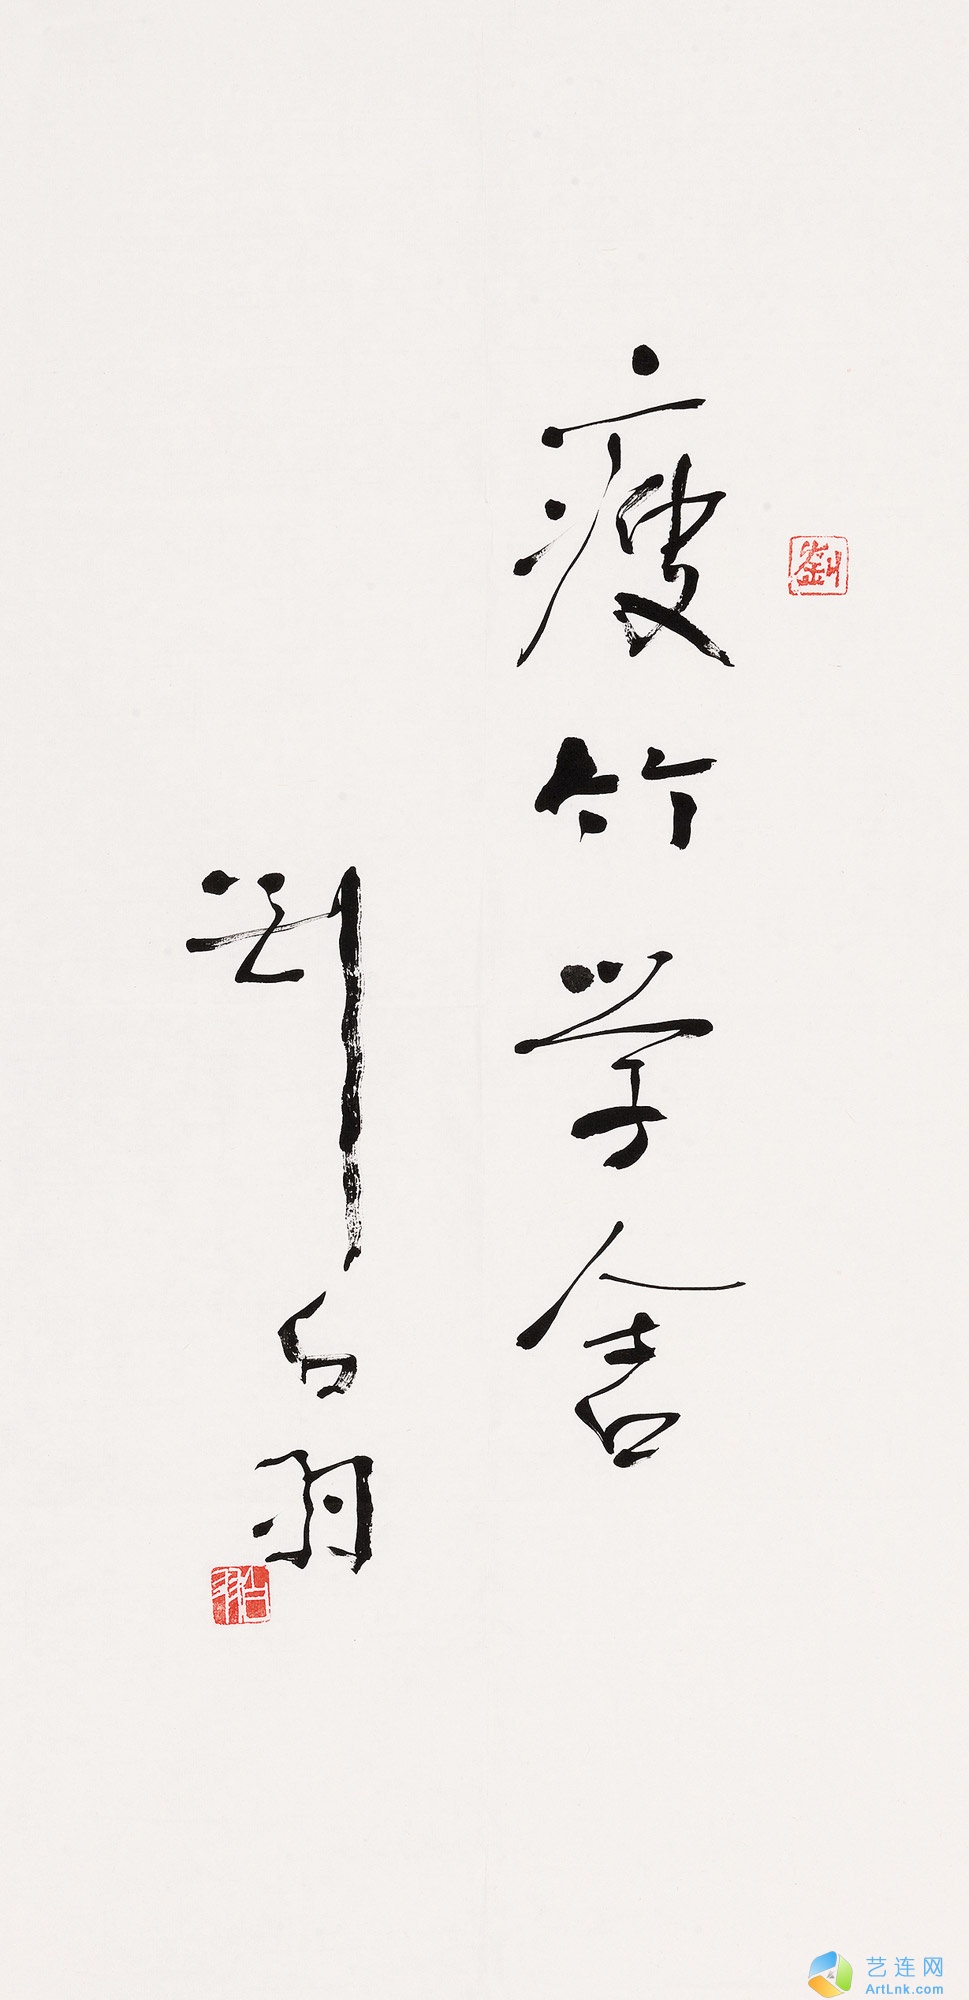 瘦竹学舍
刘白羽
劉
白羽
艺连网
ArtLnk.com